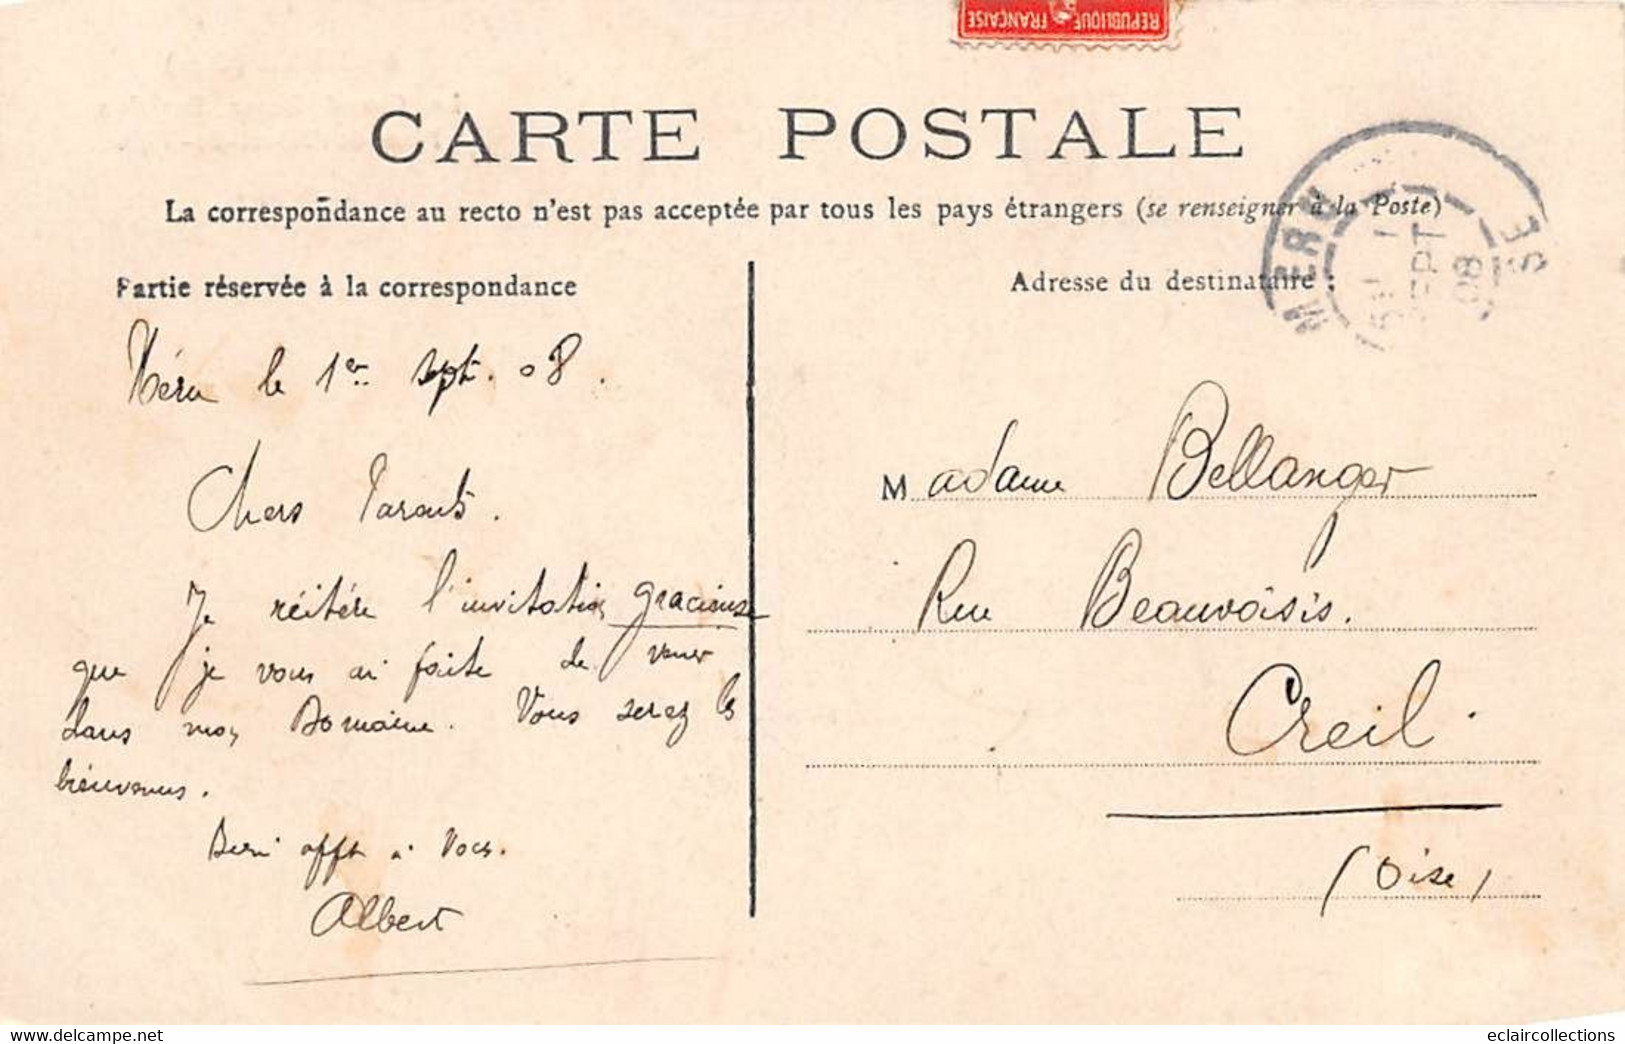 REPUBLIQUE FRANÇAISE
CARTE POSTALE
La correspondance au recto n'est pas acceptée par tous les pays étrangers (se renseigner à la Poste)
Partie réservée à la correspondance
Méru le 1er sept. 08.
Chers Parents.
Je réitère l'invitation gracieuse
que je vous ai faite de venir
dans mon Domaine. Vous serez les
bienvenus.
afft à Vous.
Albert
Adresse du destinataire :
Madame Bellanger
Rue Beauvoisis.
Creil.
(Oise)
MERU
SEPT
08
www.delcampe.net
eclaircollections